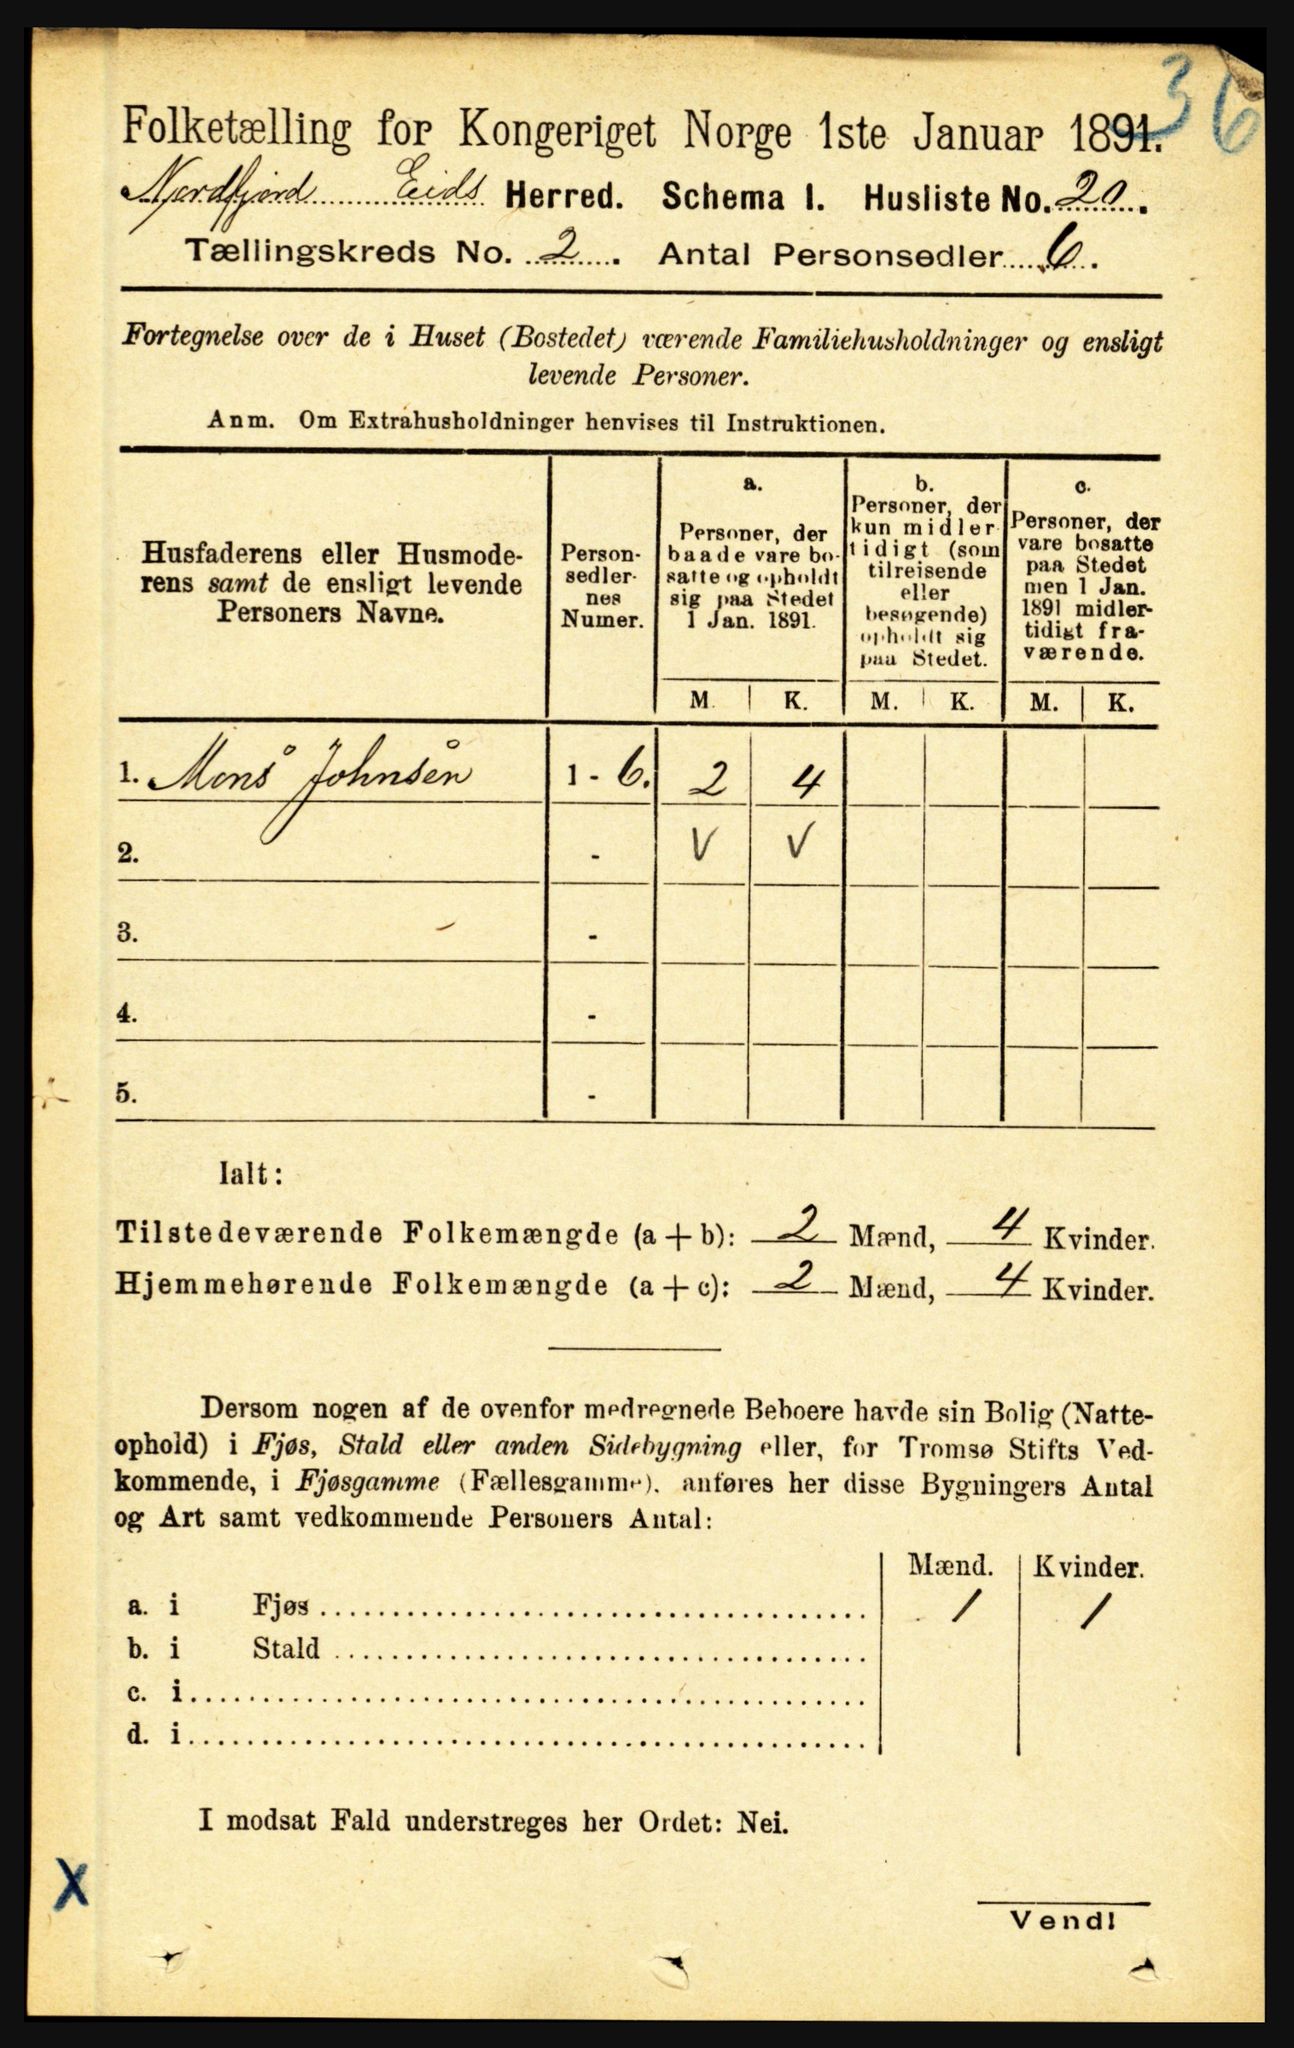 36
Folketælling for Kongeriget Norge 1ste Januar 1891.
Nordfjord Eids Herred. Schema I. Husliste No. 20.
Tællingskreds No. 2. Antal Personsedler 6.
Fortegnelse over de i Huset (Bostedet) værende Familiehusholdninger og ensligt
levende Personer.
Anm. Om Extrahusholdninger henvises til Instruktionen.
Husfaderens eller Husmode-
rens samt de ensligt levende
Personers Navne.
Person-
sedler-
nes
Numer.
a.
Personer, der
baade vare bo-
satte og opholdt
sig paa Stedet
1 Jan. 1891.
b.
Personer, der
kun midler-
tidigt (som
tilreisende
eller
besøgende)
opholdt sig
paa Stedet.
c.
Personer, der
vare bosatte
paa Stedet
men 1 Jan.
1891 midler-
tidigt fra-
værende.
M. K. M. K. M. K.
1. Mons Johnsen 1 - 6. 2 4
2. - V V
3. -
4. -
5. -
Ialt:
Tilstedeværende Folkemængde (a + b): 2 Mænd, 4 Kvinder.
Hjemmehørende Folkemængde (a + c): 2 Mænd, 4 Kvinder.
Dersom nogen af de ovenfor medregnede Beboere havde sin Bolig (Natte-
ophold) i Fjøs, Stald eller anden Sidebygning eller, for Tromsø Stifts Ved-
kommende, i Fjøsgamme (Fællesgamme), anføres her disse Bygningers Antal
og Art samt vedkommende Personers Antal:
Mænd. Kvinder.
a. i Fjøs 1 1
b. i Stald
c. i
d. i
I modsat Fald understreges her Ordet: Nei.
X
Vend!